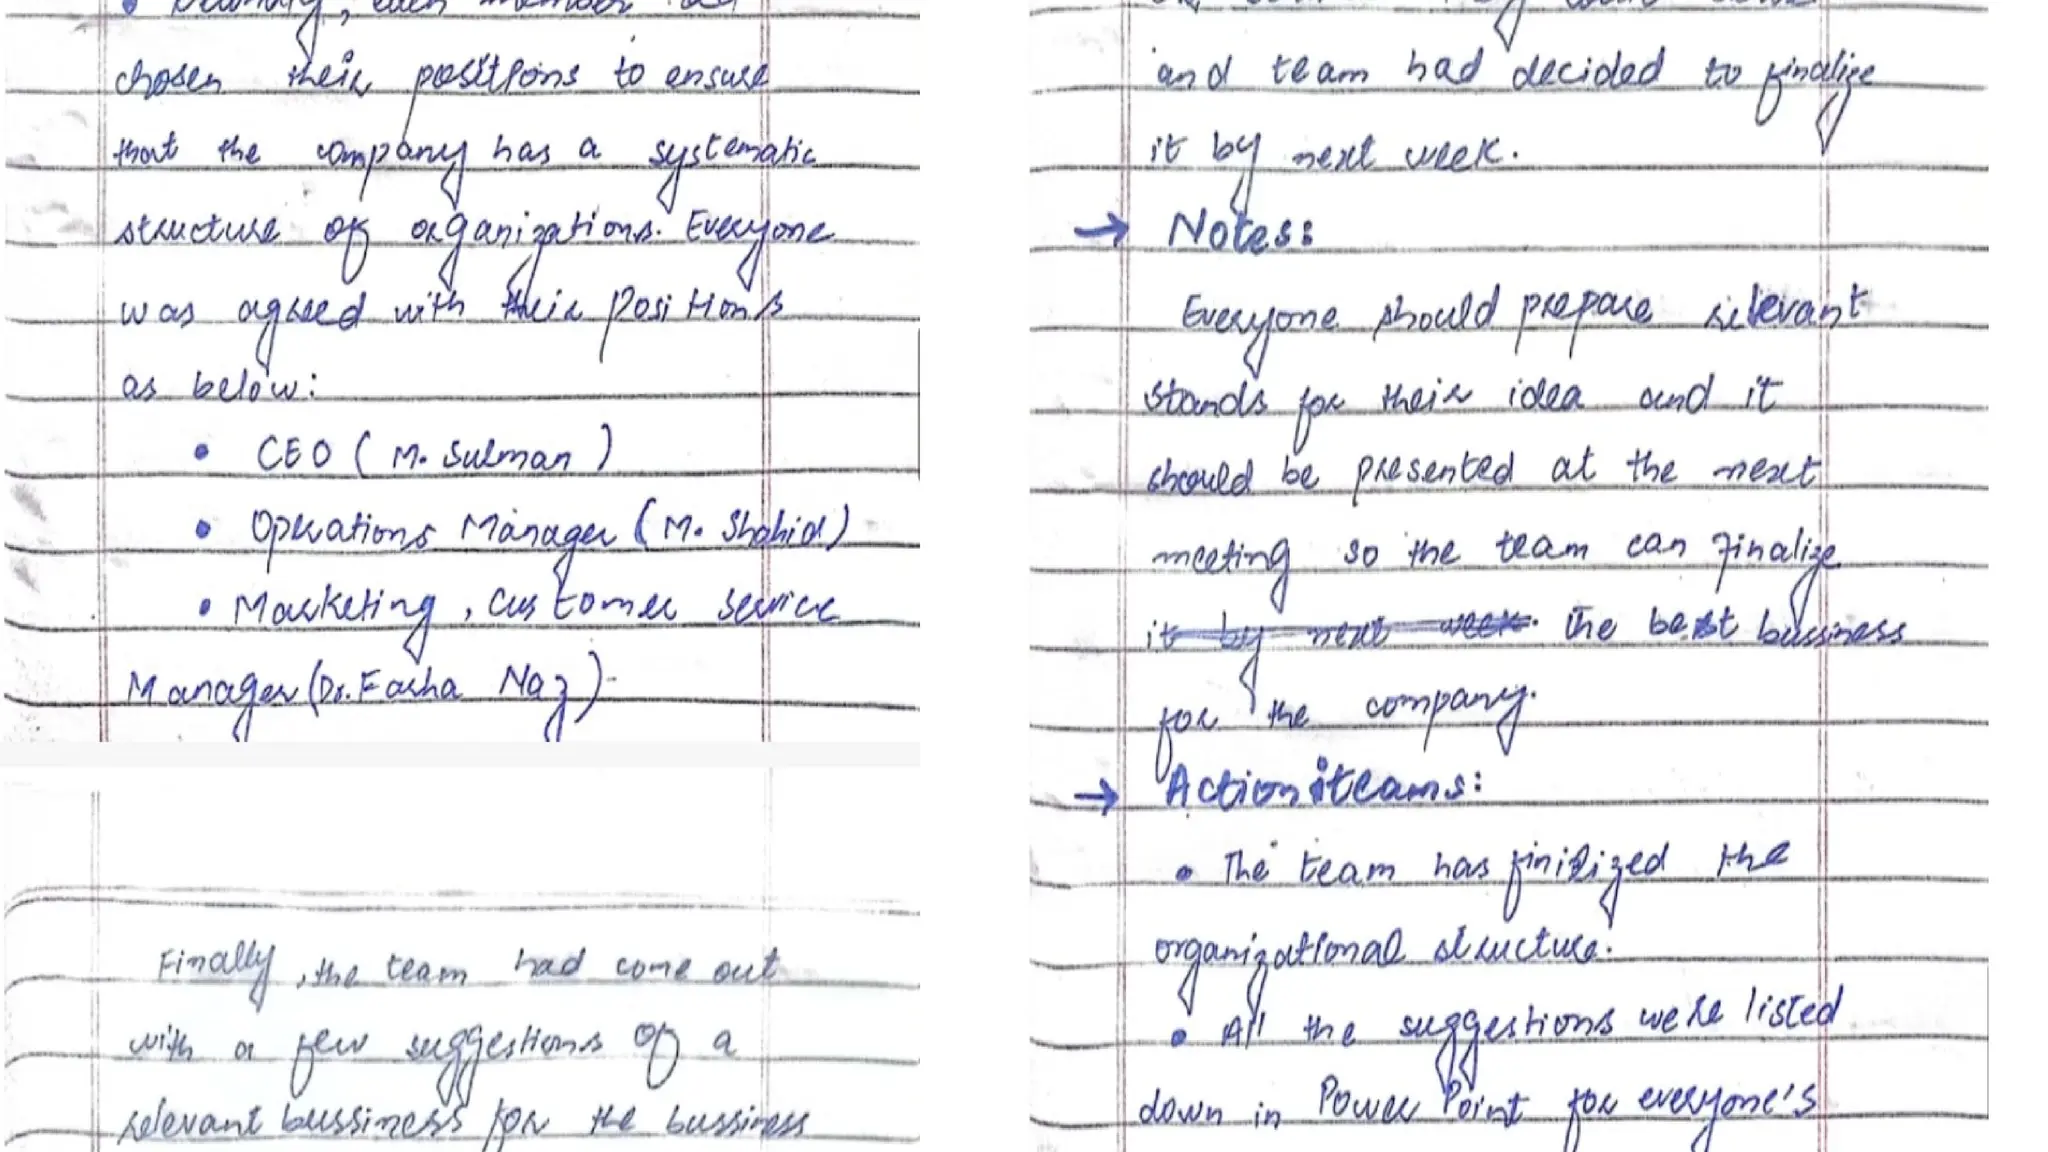 chosen their positions to ensure
that the company has a systematic
structure of organizations. Everyone
was agreed with their positions
as below:
• CEO ( M. Sulman )
• Operations Manager ( M. Shahid )
• Marketing , customer service
Manager (Dr. Farha Naz ).
Finally , the team had come out
with a few suggestions of a
relevant bussiness for the bussiness
and team had decided to finalize
it by next week.
→ Notes:
Everyone should prepare relevant
stands for their idea and it
should be presented at the next
meeting so the team can finalize
it by next week. The best bussiness
for the company.
→ Action iteams:
• The team has finilized the
organizational structure.
• All the suggestions were listed
down in Power Point for everyone's